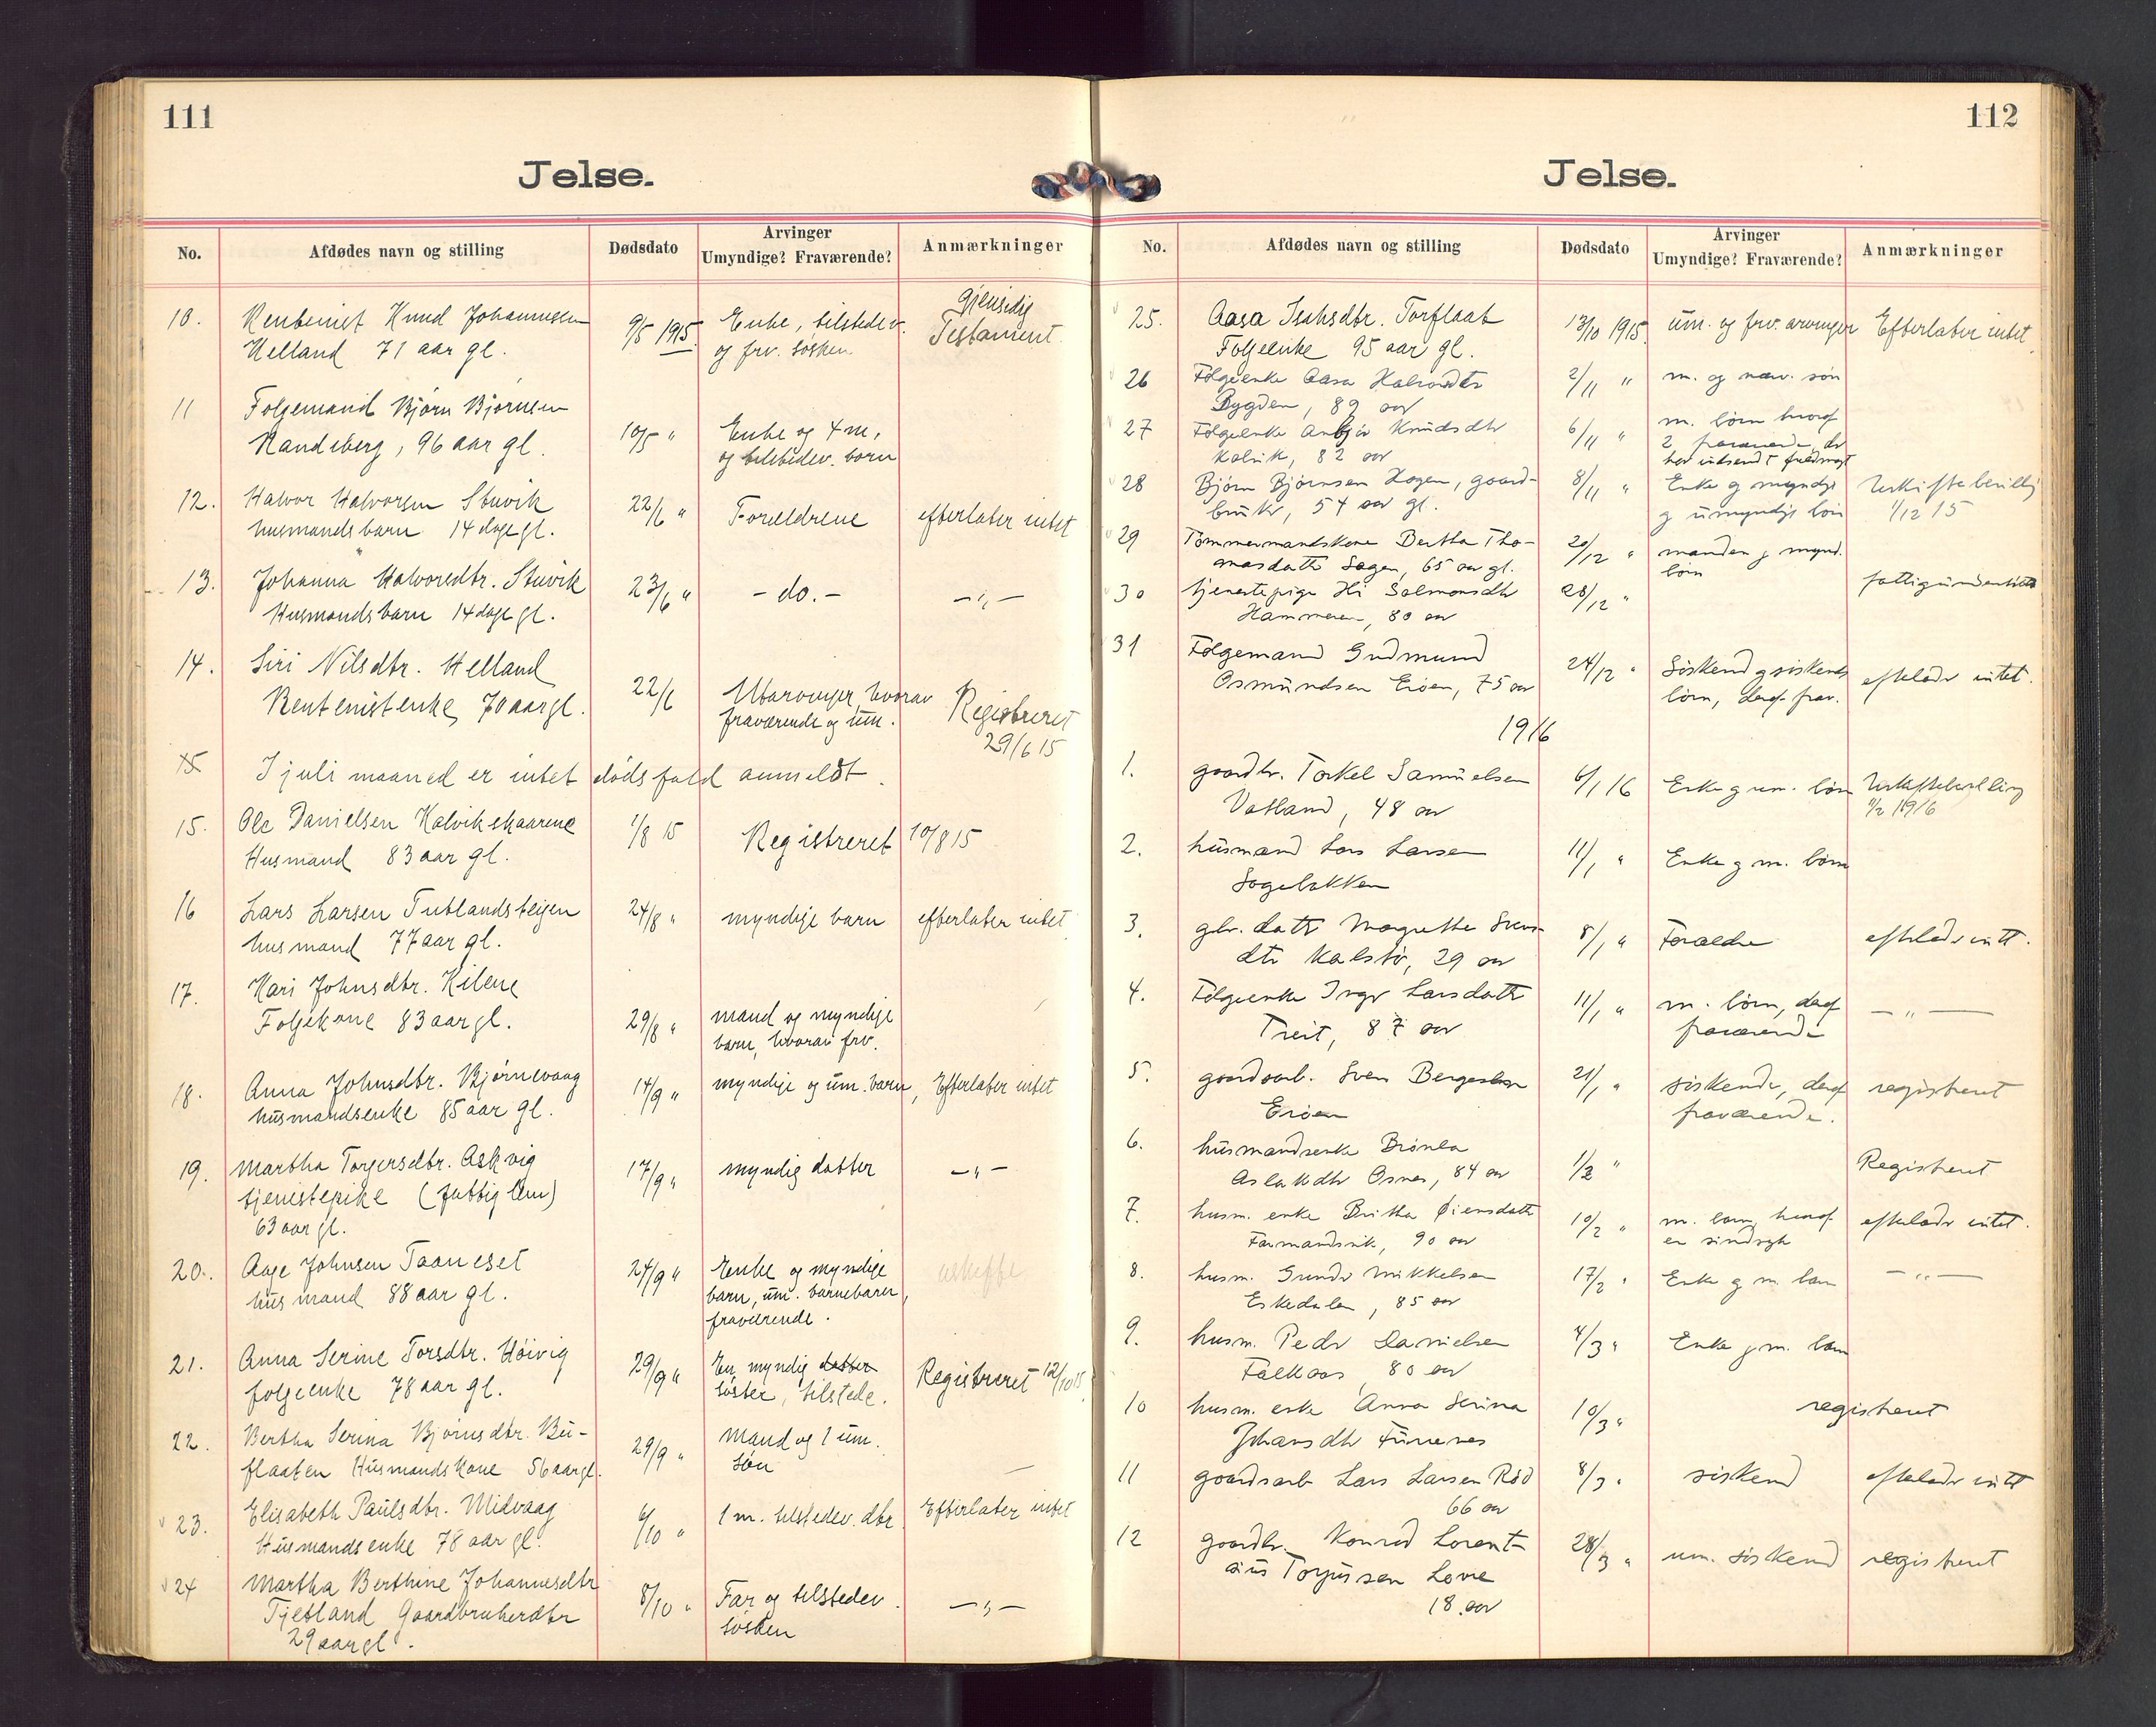 111
Jelse.
No. Afdødes navn og stilling Dødsdato Arvinger Umyndige? Fraværende? Anmærkninger
10. Rentenist Knud Johannessen 9/5 1915. Enke, tilstedev. Gjensidig
Helland 71 aar gl. og frv. søsken. Testament.
11 Folgemand Bjørn Bjørnsen 10/5 " Enke og 4 m.
Randeberg, 96 aar gl. og tilstedev. barn
12. Halvor Halvorsen Stuvik 22/6 " Forældrene efterlater intet
husmandsbarn 14 dage gl.
13. Johanna Halvorsdtr. Stuvik 23/6 " - do. - - " -
Husmandsbarn 14 dage gl.
14. Siri Nilsdtr. Helland 22/6 Utarvinger, hvorav Registreret
Rentenistenke, 70 aar gl. fraværende og um. 29/6 15
15 I juli maaned er intet dødsfald anmeldt.
15. Ole Danielsen Kalvikskaarene 1/8 15 Registreret 10/8 15
Husmand 83 aar gl.
16 Lars Larsen Tutlandsteigen 24/8 " myndige barn efterlater intet
husmand 77 aar gl.
17. Kari Johnsdtr. Hilene 29/8 " mand og myndige
Folgekone 83 aar gl. barn, hvorav frv.
18. Anna Johnsdtr. Bjørnevaag 14/9 " myndige og um. barn, Efterlater intet
husmandsenke 85 aar gl.
19. Martha Torgersdtr. Askvig 17/9 " myndig datter - " -
tjenestepike (fattiglem)
63 aar gl.
20. Aage Johnsen Taaneset 24/9 " Enke og myndige
husmand 88 aar gl. barn, um. barnebarn,
fraværende.
21. Anna Serine Torsdtr. Høivig 29/9 " En myndig datter Registreret 12/10 15
folgeenke 78 aar gl. søster, tilstede.
22. Bertha Serina Bjørnsdtr. Bu- 29/9 " Mand og 1 um. —
flaaten Husmandskone 56 aar gl. søn
23. Elisabeth Paulsdtr. Midvaag 6/10 " 1 m. tilstedev. dtr. Efterlater intet
Husmandsenke 78 aar gl.
24 Martha Berthine Johannesdtr 8/10 " Far og tilstedev. - " -
Tjetland Gaardbrukerdtr søsken
29 aar gl.
112
Jelse.
No. Afdødes navn og stilling Dødsdato Arvinger Umyndige? Fraværende? Anmærkninger
25. Aasa Isaksdtr. Torflaat 13/10 1915. um. og frv. arvinger Efterlater intet.
Folgeenke 95 aar gl.
26 Folgeenke Aasa Halvordtr 2/11 " m. og nærv. søn
Bygden, 89 aar
27 Folgeenke Knudsdtr 6/11 " m. børn hvoraf
Kalvik, 82 aar 2 fraværende, der
har indsendt fuldmagt
28 Bjørn Bjørnsen Hagen, gaard- 8/11 " Enke og myndige Uskiftebevilling
bruker, 54 aar gl. og umyndige børn 1/12 15
29 Tømmermandskone Bertha Tho- 20/12 " manden og mynd.
masdatter Sagen, 65 aar gl. børn
30 tjenestepige Salmonsdtr 28/12 " fattigunderstøttet
Hammeren, 80 aar
31 Folgemand Gudmund 24/12 " Søskend og søskendes efterlader intet.
Osmundsen Erøen, 75 aar børn, deraf frav.
1916
1. gaardbr. Torkel Samuelsen 6/1 16 Enke og um. børn Uskiftebevilling
Vatland, 48 aar 4/2 1916
2. husmand Lars Larsen 11/1 " Enke og m. børn
Sagebakken
3. gbr. datter Margrethe Svens- 8/1 " Forældre efterlader intet.
dtr Kalstø, 29 aar
4. Folgeenke Inger Larsdatter 11/1 " m. børn, deraf - " -
Treit, 87 aar fraværende
5. gaardarb. Sven Bergesen 21/1 " søskende, deraf registreret
Erøen fraværende.
6. husmandsenke 1/2 " Registreret
Aslakdtr Osnes, 84 aar
7. husm. enke Britha Øiensdatter 10/2 " m. barn, hvoraf efterlader intet.
Farmandsvik, 90 aar en sindsyk
8. husm. Gunder Mikkelsen 17/2 " Enke og m. barn - " -
Eskedalen, 85 aar
9. husm. Peder Danielsen 4/3 " Enke og m. barn
Falkaas, 80 aar
10 husm. enke Anna Serina 10/3 " registreret
Johansdtr Furenes
11 gaardsarb Lars Larsen Rød 8/3 " søskend efterlader intet
66 aar
12 gaardbr. Konrad Lorent- 28/3 " um. søskend registreret
sius Torjussen Lovre
18 aar